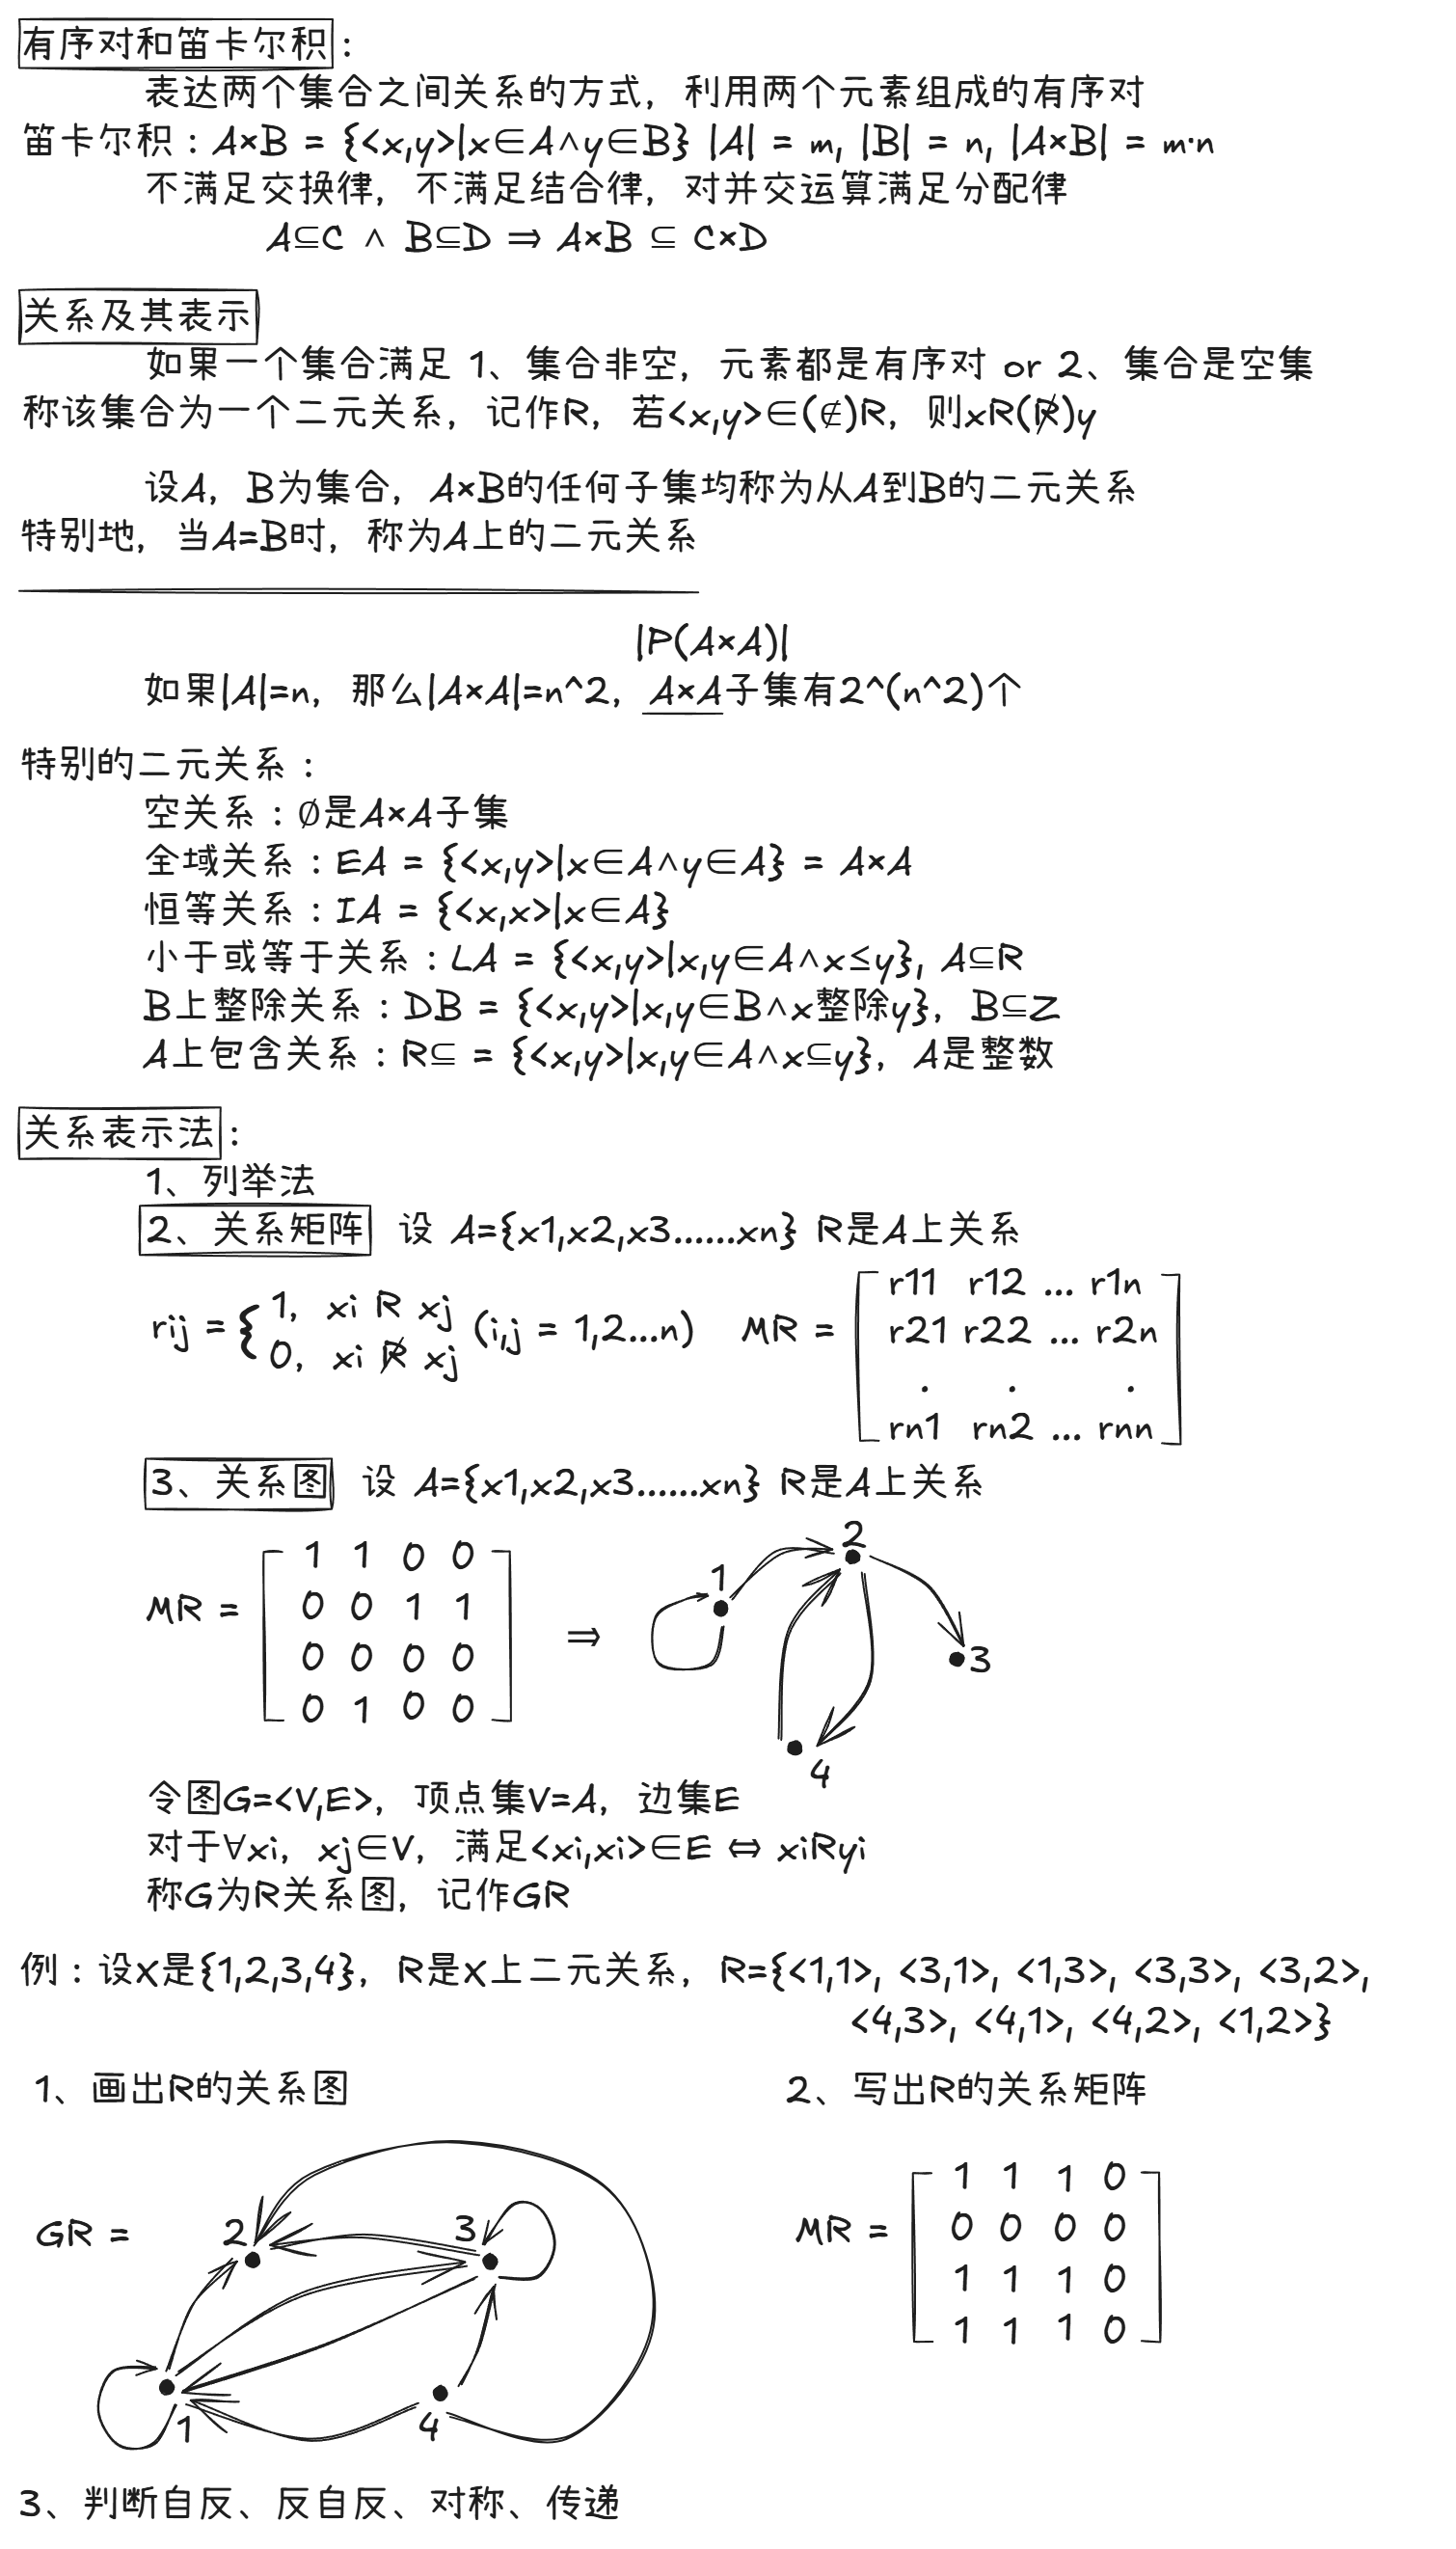 有序对和笛卡尔积：
表达两个集合之间关系的方式，利用两个元素组成的有序对
笛卡尔积：A×B = {<x,y>|x∈A∧y∈B} |A| = m, |B| = n, |A×B| = m·n
不满足交换律，不满足结合律，对并交运算满足分配律
A⊆C ∧ B⊆D ⇒ A×B ⊆ C×D
关系及其表示
如果一个集合满足 1、集合非空，元素都是有序对 or 2、集合是空集
称该集合为一个二元关系，记作R，若<x,y>∈(∉)R，则xR(R̸)y
设A，B为集合，A×B的任何子集均称为从A到B的二元关系
特别地，当A=B时，称为A上的二元关系
|P(A×A)|
如果|A|=n，那么|A×A|=n^2，A×A子集有2^(n^2)个
特别的二元关系：
空关系：∅是A×A子集
全域关系：EA = {<x,y>|x∈A∧y∈A} = A×A
恒等关系：IA = {<x,x>|x∈A}
小于或等于关系：LA = {<x,y>|x,y∈A∧x≤y}, A⊆R
B上整除关系：DB = {<x,y>|x,y∈B∧x整除y}，B⊆Z
A上包含关系：R⊆ = {<x,y>|x,y∈A∧x⊆y}，A是整数
关系表示法：
1、列举法
2、关系矩阵 设 A={x1,x2,x3......xn} R是A上关系
rij = { 1, xi R xj
0, xi R̸ xj (i,j = 1,2...n)
MR = r11 r12 ... r1n
r21 r22 ... r2n
. . .
rn1 rn2 ... rnn
3、关系图 设 A={x1,x2,x3......xn} R是A上关系
MR = 1 1 0 0
0 0 1 1
0 0 0 0
0 1 0 0
⇒
1
2
3
4
令图G=<V,E>，顶点集V=A，边集E
对于∀xi，xj∈V，满足<xi,xi>∈E ⇔ xiRyi
称G为R关系图，记作GR
例：设X是{1,2,3,4}，R是X上二元关系，R={<1,1>, <3,1>, <1,3>, <3,3>, <3,2>,
<4,3>, <4,1>, <4,2>, <1,2>}
1、画出R的关系图
2、写出R的关系矩阵
GR =
2
3
1
4
MR = 1 1 1 0
0 0 0 0
1 1 1 0
1 1 1 0
3、判断自反、反自反、对称、传递